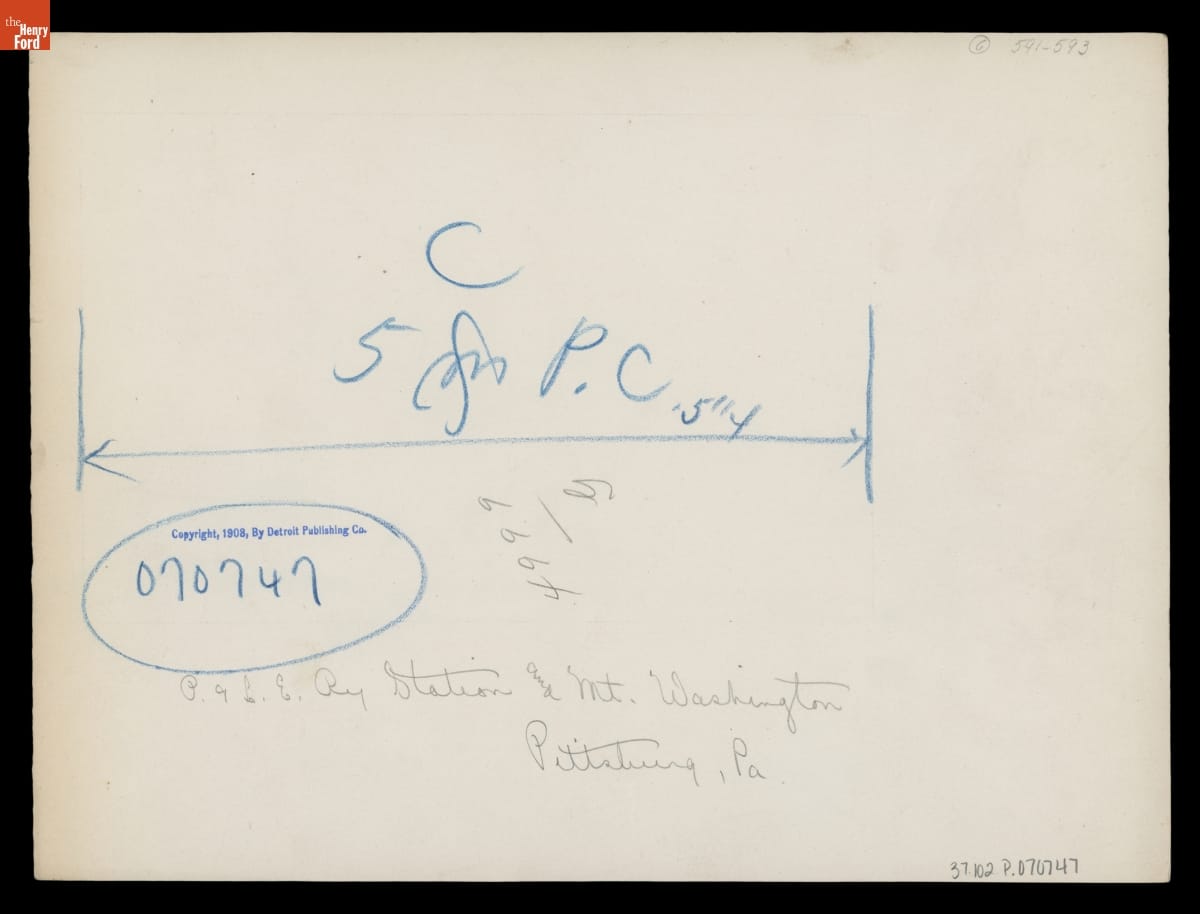 the
Henry
Ford
6 591-593
C
5 for P.C.
5"
Copyright, 1908, By Detroit Publishing Co.
070747
4999
P. & L. E. Ry Station and Mt. Washington
Pittsburg, Pa.
37.102 P.070747